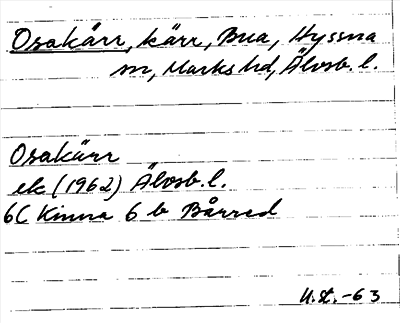 Osakärr, kärr, Bua, Hyssna
sn, Marks hd, Älvsb. l.
Osakärr
ek (1962) Älvsb. l.
6C Kinna 6 b Bårred
U.st. -63